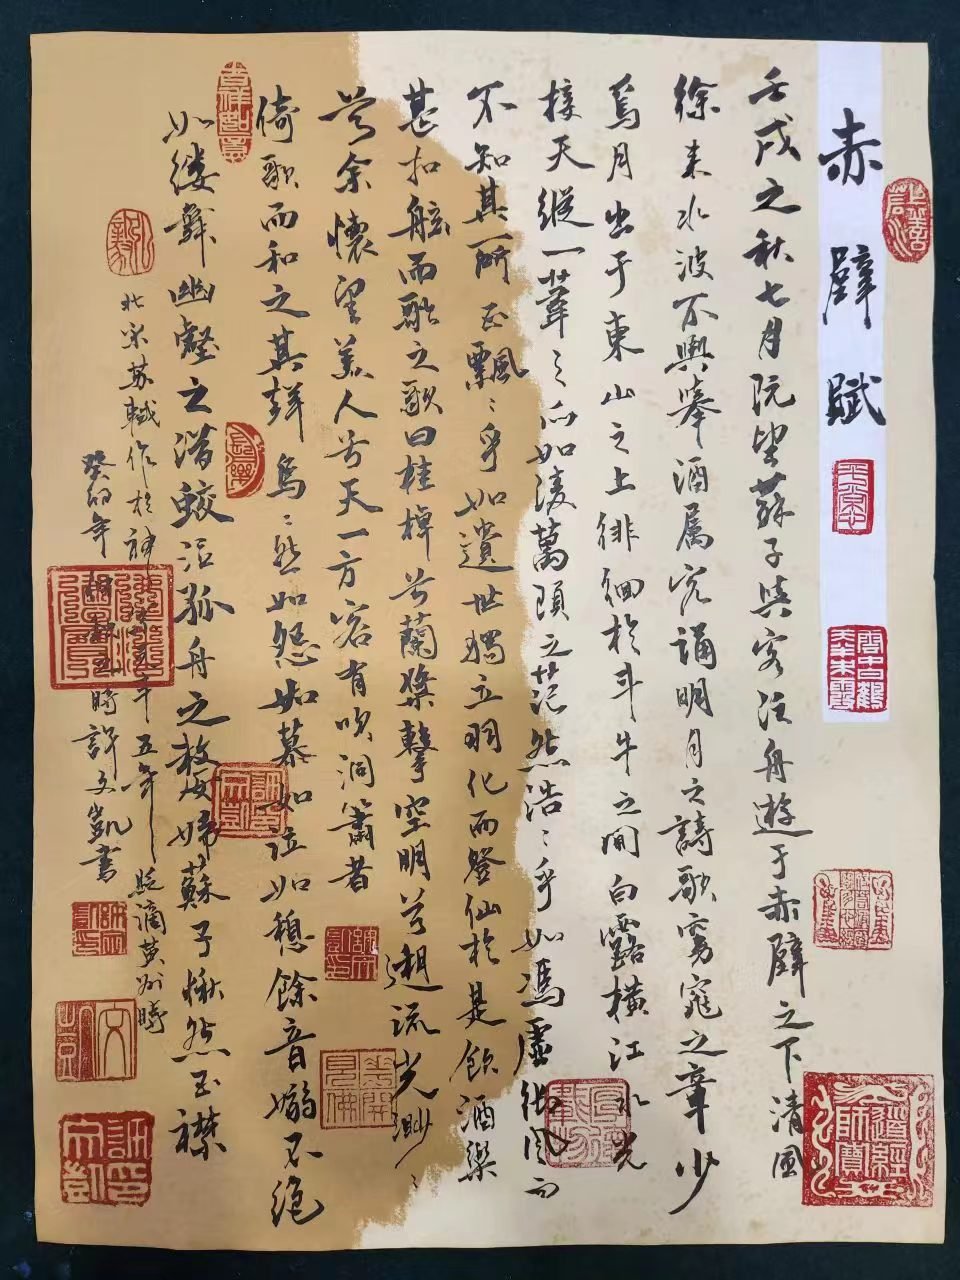 赤壁賦
壬戌之秋七月既望蘇子與客泛舟遊于赤壁之下清風
徐来水波不興舉酒属客誦明月之詩歌窈窕之章少
焉月出于東山之上徘徊於斗牛之間白露横江水光
接天縱一葦之所如凌萬頃之茫然浩浩乎如馮虚御風而
不知其所止飄飄乎如遺世獨立羽化而登仙於是飲酒樂
甚扣舷而歌之歌曰桂棹兮蘭槳擊空明兮溯流光渺渺
兮余懷望美人兮天一方客有吹洞簫者
倚歌而和之其聲嗚嗚然如怨如慕如泣如
餘音嫋不絶
如縷舞幽壑之潜蛟泣孤舟之嫠婦蘇子愀然正襟
北宋苏軾作於神五年貶謫黄州時
癸卯年
時許文凱書